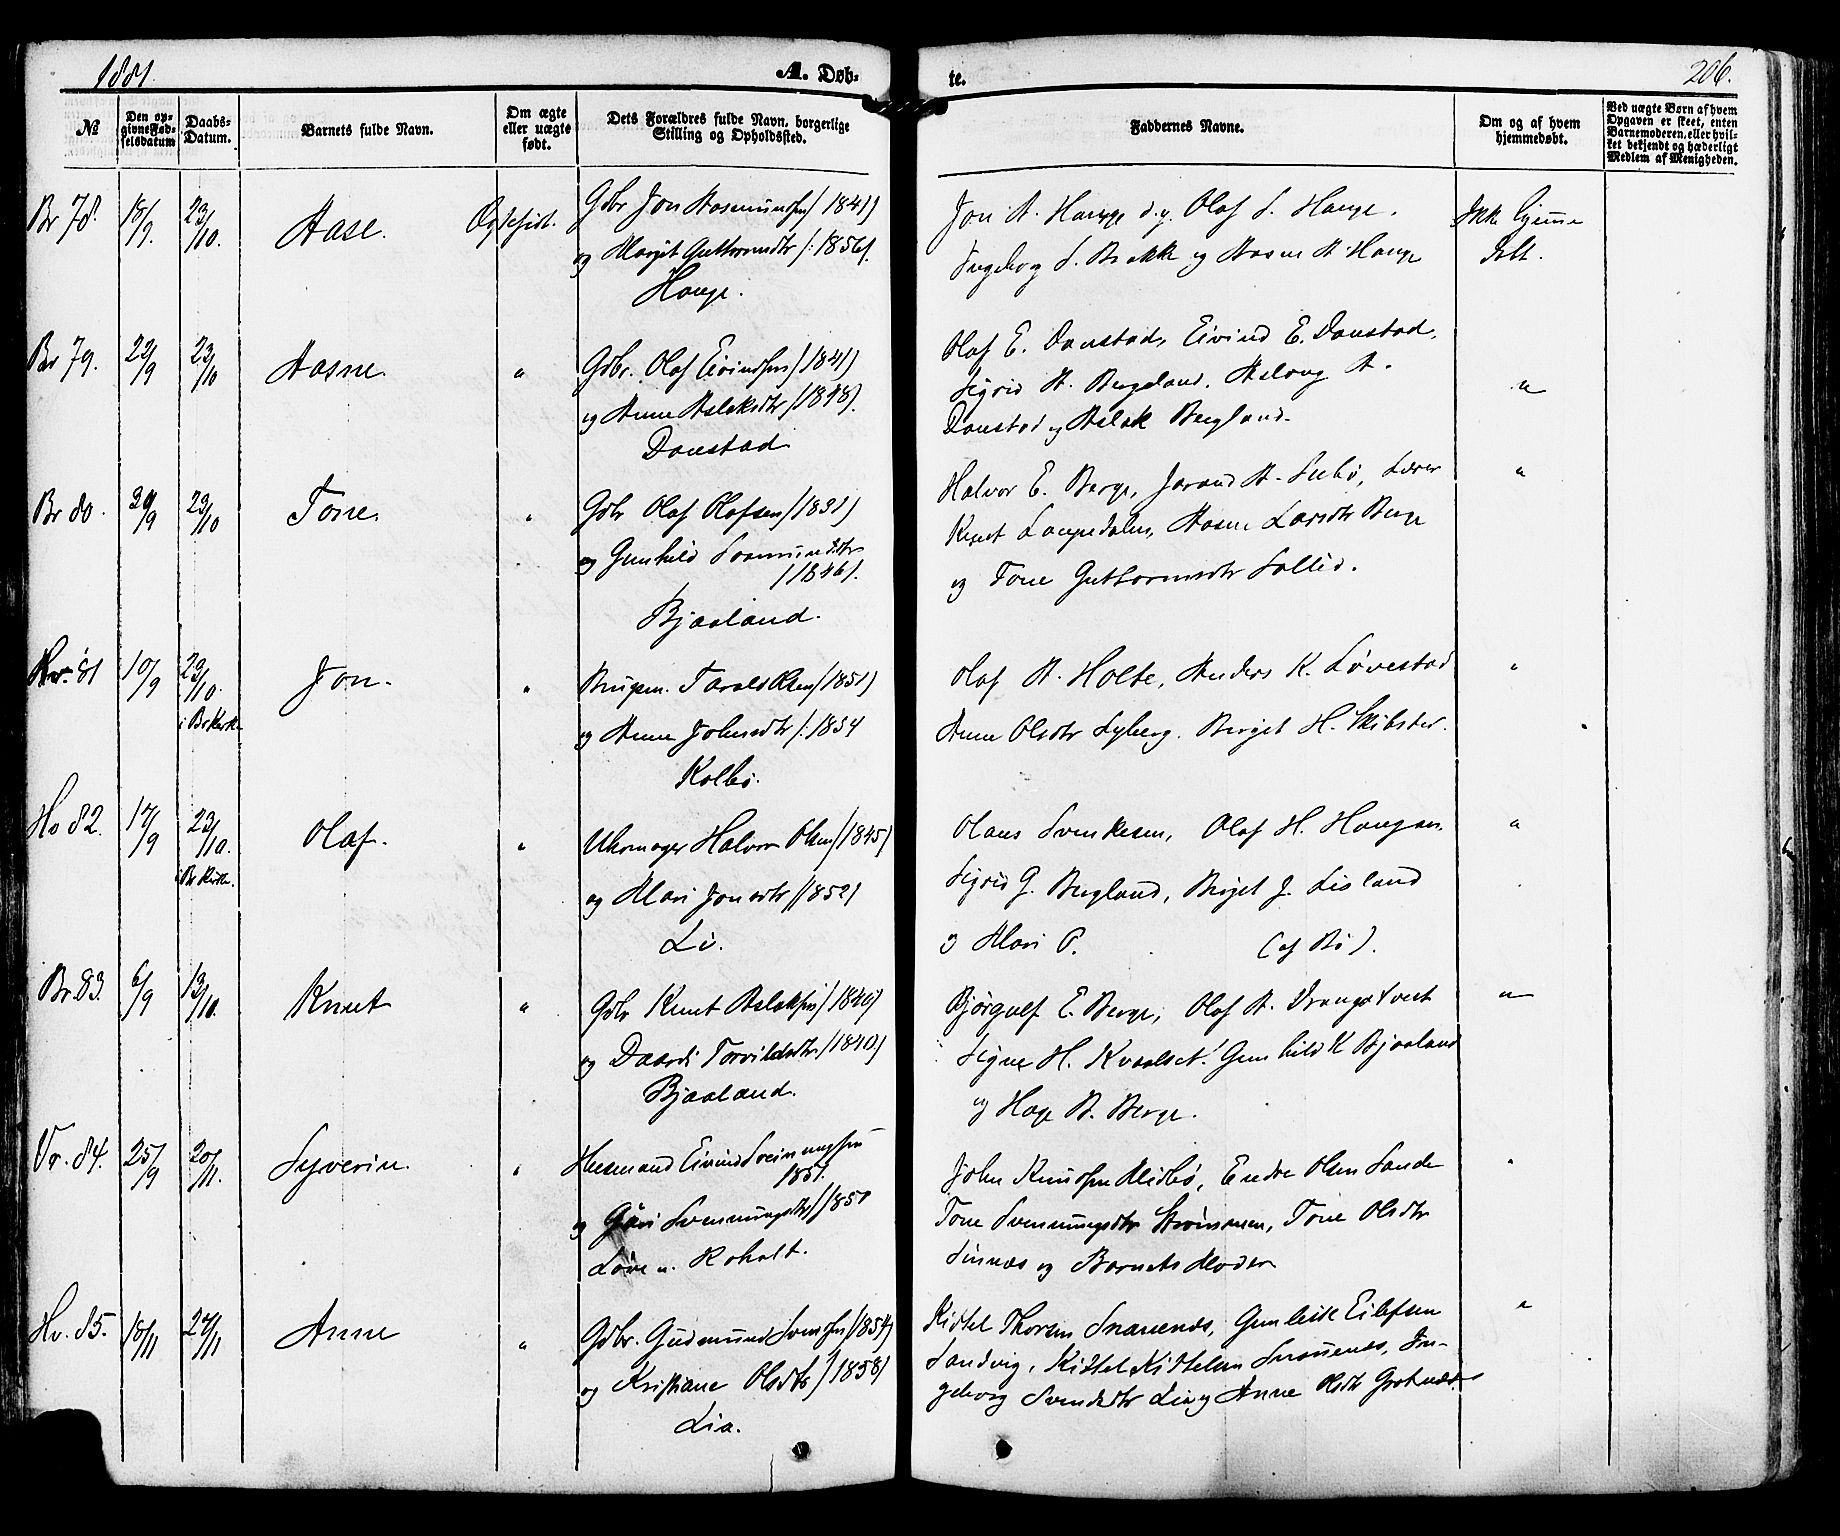 1881.
A. Døb-
te.
206.
№
Den op-
givne Fød-
selsdatum
Daabs-
Datum.
Barnets fulde Navn.
Om ægte
eller uægte
født.
Dets Forældres fulde Navn, borgerlige
Stilling og Opholdssted.
Faddernes Navne.
Om og af hvem
hjemmedøbt.
Ved uægte Børn af hvem
Opgaven er skeet, enten
Barnemoderen, eller hvil-
ket bekjendt og hæderligt
Medlem af Menigheden.
Br 78. 18/9. 23/10. Aase. Ægtefød.
Gdbr Jon Aasmundsen (1841)
og Margit Guttormsdtr (: 1856).
Hauge.
Jon A. Hauge d.y. Olaf S. Hauge.
Ingeborg S. Brekke og Aasne A. Hauge
Ikke hjemme
døbt.
Br 79. 22/9 23/10 Aasne. "
Gdbr. Olaf Eivindsen (1841)
og Anne Aslaksdtr (1848).
Donstad
Olaf E. Donstad, Eivind E. Donstad,
Sigrid A. Bergland. Aslaug A.
Donstad og Aslak Bergland.
"
Br 80. 29/9 23/10 Tone. "
Gdbr Olaf Olafsen (1831)
og Gunhild Saamundsdtr
(1846).
Bjaaland.
Halvor E. Berge, Jorand A. Seebø, Lærer
Knut Laupedalen, Aasne Larsdtr Berge
og Tone Guttormsdtr Sollid.
"
81 10/9 23/10. Jon. "
i Br Kirke
Brugsm. Tarald Olsen (1851)
og Anne Johnsdtr (: 1854
Kolbø.
Olaf A. Holte, Anders K. Løvestad
Anne Olsdtr Lyberg. Berget H. Skibster.
"
Hv 82. 17/9 23/10. Olaf. "
i Br Kirke.
Uhrmager Halvor Olsen (1845)
og Mari Jonsdtr (1852)
Li.
Olaus Svenkesen, Olaf H. Haugan.
Sigrid G. Bergland, Berget J. Lisland
og Mari P. (af Bø).
"
Br. 83. 6/9 13/10. Knut "
Gdbr Knut Aslaksen (1840)
og Daardi Torvildsdtr (1840)
Bjaaland.
Bjørgulf E. Berge, Olaf A. Vrangstveit
Signe H. Kvaalset. Gunhild K Bjaaland
og Hage B. Berge.
"
Vr. 84. 25/9 20/11. Syverin. "
Husmand Eivind Sveinungsen
1851.
og Gøri Svennungsdtr (1850
Løve u. Roholt.
John Knudsen Midbø, Endre Olsen Sande
Tone Svennungsdtr Strømmen, Tone Olsdtr
Sinnæs og Barnets Moder
"
Hv. 85. 18/11 27/11 Anne "
Gdbr. Gudmund Svensen (1854)
og Kristiane Olsdtr (1858)
Lia.
Kittel Thorsen Snauenes, Gunleik Eilefsen
Sandvig, Kittel Kittelsen Snauenes, In-
geborg Svensdtr Lia og Anne Olsdtr Grotnæs.
"